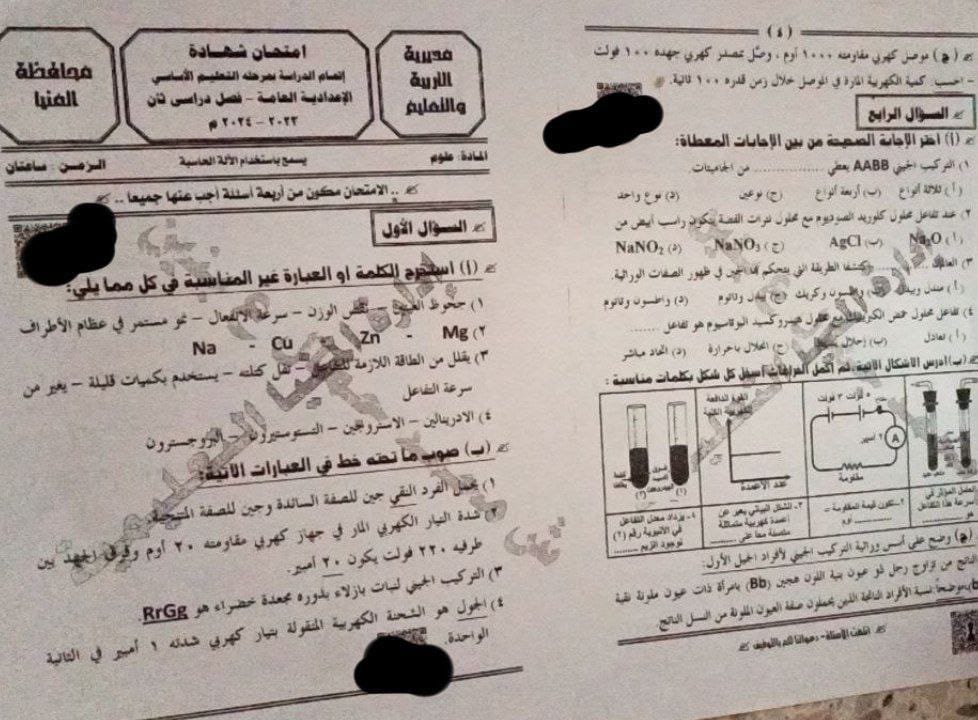 محافظة
المنيا
امتحان شهادة
إتمام الدراسة بمرحلة التعليم الأساسي
الإعدادية العامة – فصل دراسي ثان
٢٠٢٣ – ٢٠٢٤ م
مديرية
التربية
والتعليم
المادة: علوم
يسمح باستخدام الآلة الحاسبة
الزمن: ساعتان
.. الامتحان مكون من أربعة أسئلة أجب عنها جميعا ..
السؤال الأول
(أ) استخرج الكلمة او العبارة غير المناسبة في كل مما يلي:
١) جحوظ العينين – نقص الوزن – سرعة الانفعال – نمو مستمر في عظام الأطراف
٢) Mg - Zn - Cu - Na
٣) يقلل من الطاقة اللازمة للتفاعل – تقل كتلته – يستخدم بكميات قليلة – يغير من
سرعة التفاعل
٤) الادرينالين – الاستروجين – التستوستيرون – البروجسترون
(ب) صوب ما تحته خط في العبارات الآتية:
١) يحمل الفرد النقي جين للصفة السائدة وجين للصفة المتنحية.
٢) شدة التيار الكهربي المار في جهاز كهربي مقاومته ٢٠ أوم وفرق الجهد بين
طرفيه ٢٢٠ فولت يكون ٢٠ أمبير.
٣) التركيب الجيني لنبات بازلاء بذوره مجعدة خضراء هو RrGg.
٤) الجول هو الشحنة الكهربية المنقولة بتيار كهربي شدته ١ أمبير في الثانية
الواحدة.
(٤)
(ج) موصل كهربي مقاومته ١٠٠٠ أوم، وصل بمصدر كهربي جهده ١٠٠ فولت
– احسب كمية الكهربية المارة في الموصل خلال زمن قدره ١٠٠ ثانية.
السؤال الرابع
(أ) اختر الإجابة الصحيحة من بين الإجابات المعطاة:
١) التركيب الجيني AABB يعطي .............. من الجاميتات.
(أ) ثلاثة أنواع (ب) أربعة أنواع (ج) نوعين (د) نوع واحد
٢) عند تفاعل محلول كلوريد الصوديوم مع محلول نترات الفضة يتكون راسب أبيض من
(أ) Na₂O (ب) AgCl (ج) NaNO₃ (د) NaNO₂
٣) العالمان ......... اكتشفا الطريقة التي يتحكم بها الجين في ظهور الصفات الوراثية.
(أ) مندل وبيدل (ب) واطسون وكريك (ج) بيدل وتاتوم (د) واطسون وتاتوم
٤) تفاعل محلول حمض الكبريتيك مع محلول هيدروكسيد البوتاسيوم هو تفاعل .......
(أ) تعادل (ب) إحلال بسيط (ج) انحلال بالحرارة (د) اتحاد مباشر
(ب) ادرس الأشكال الآتية، ثم أكمل الفراغات أسفل كل شكل بكلمات مناسبة:
القوة الدافعة
الكهربية الكلية
عدد الأعمدة
٣ فولت
٢ أمبير
A
مقاومة
(١)
(٢)
١- العامل المؤثر في
سرعة هذا التفاعل
٢- تكون قيمة المقاومة =
........ أوم
٣- الشكل البياني يعبر عن
أعمدة كهربية متماثلة
متصلة معا على ........
٤- يزداد معدل التفاعل
في الأنبوبة رقم (٢)
لوجود انزيم ........
(ج) وضح على أسس وراثية التركيب الجيني لأفراد الجيل الأول:
الناتج من تزاوج رجل ذو عيون بنية اللون هجين (Bb) بامرأة ذات عيون ملونة نقية
موضحاً نسبة الأفراد الناتجة الذين يحملون صفة العيون الملونة من النسل الناتج
انتهت الأسئلة – دعواتنا لكم بالتوفيق